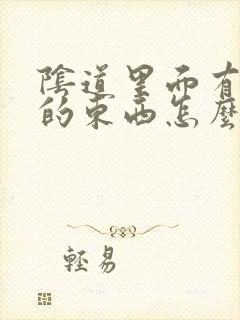 陰道里面有
的東西怎麼
輕易